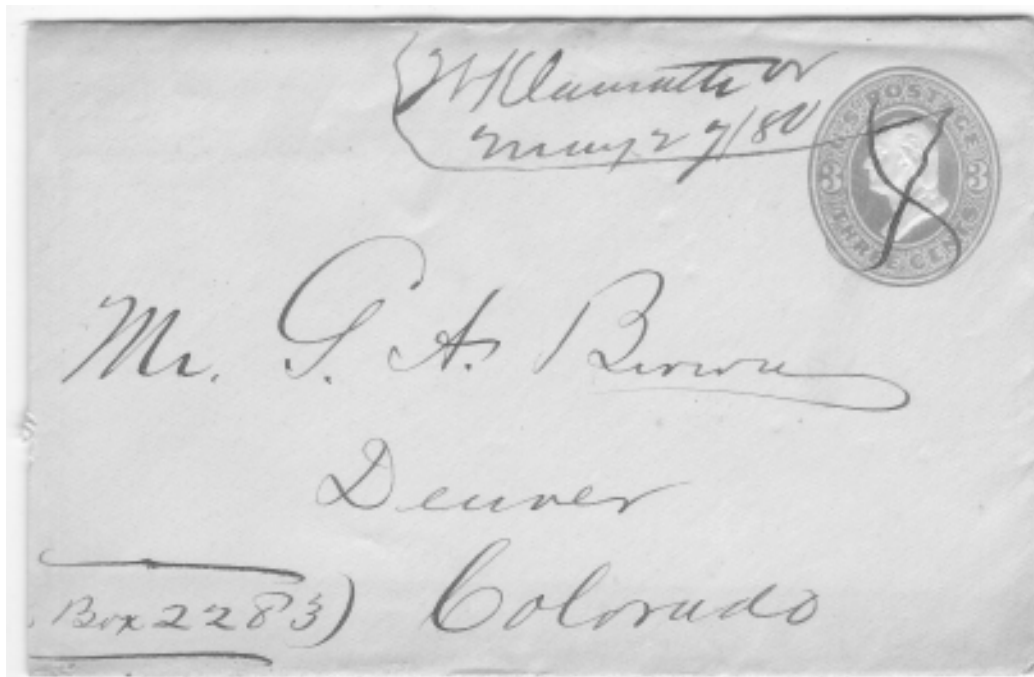 Klamath Or
May 27/80
U.S. POSTAGE
3 3
THREE CENTS
Mr. G. A. Brown
Denver
Colorado
Box 2283)